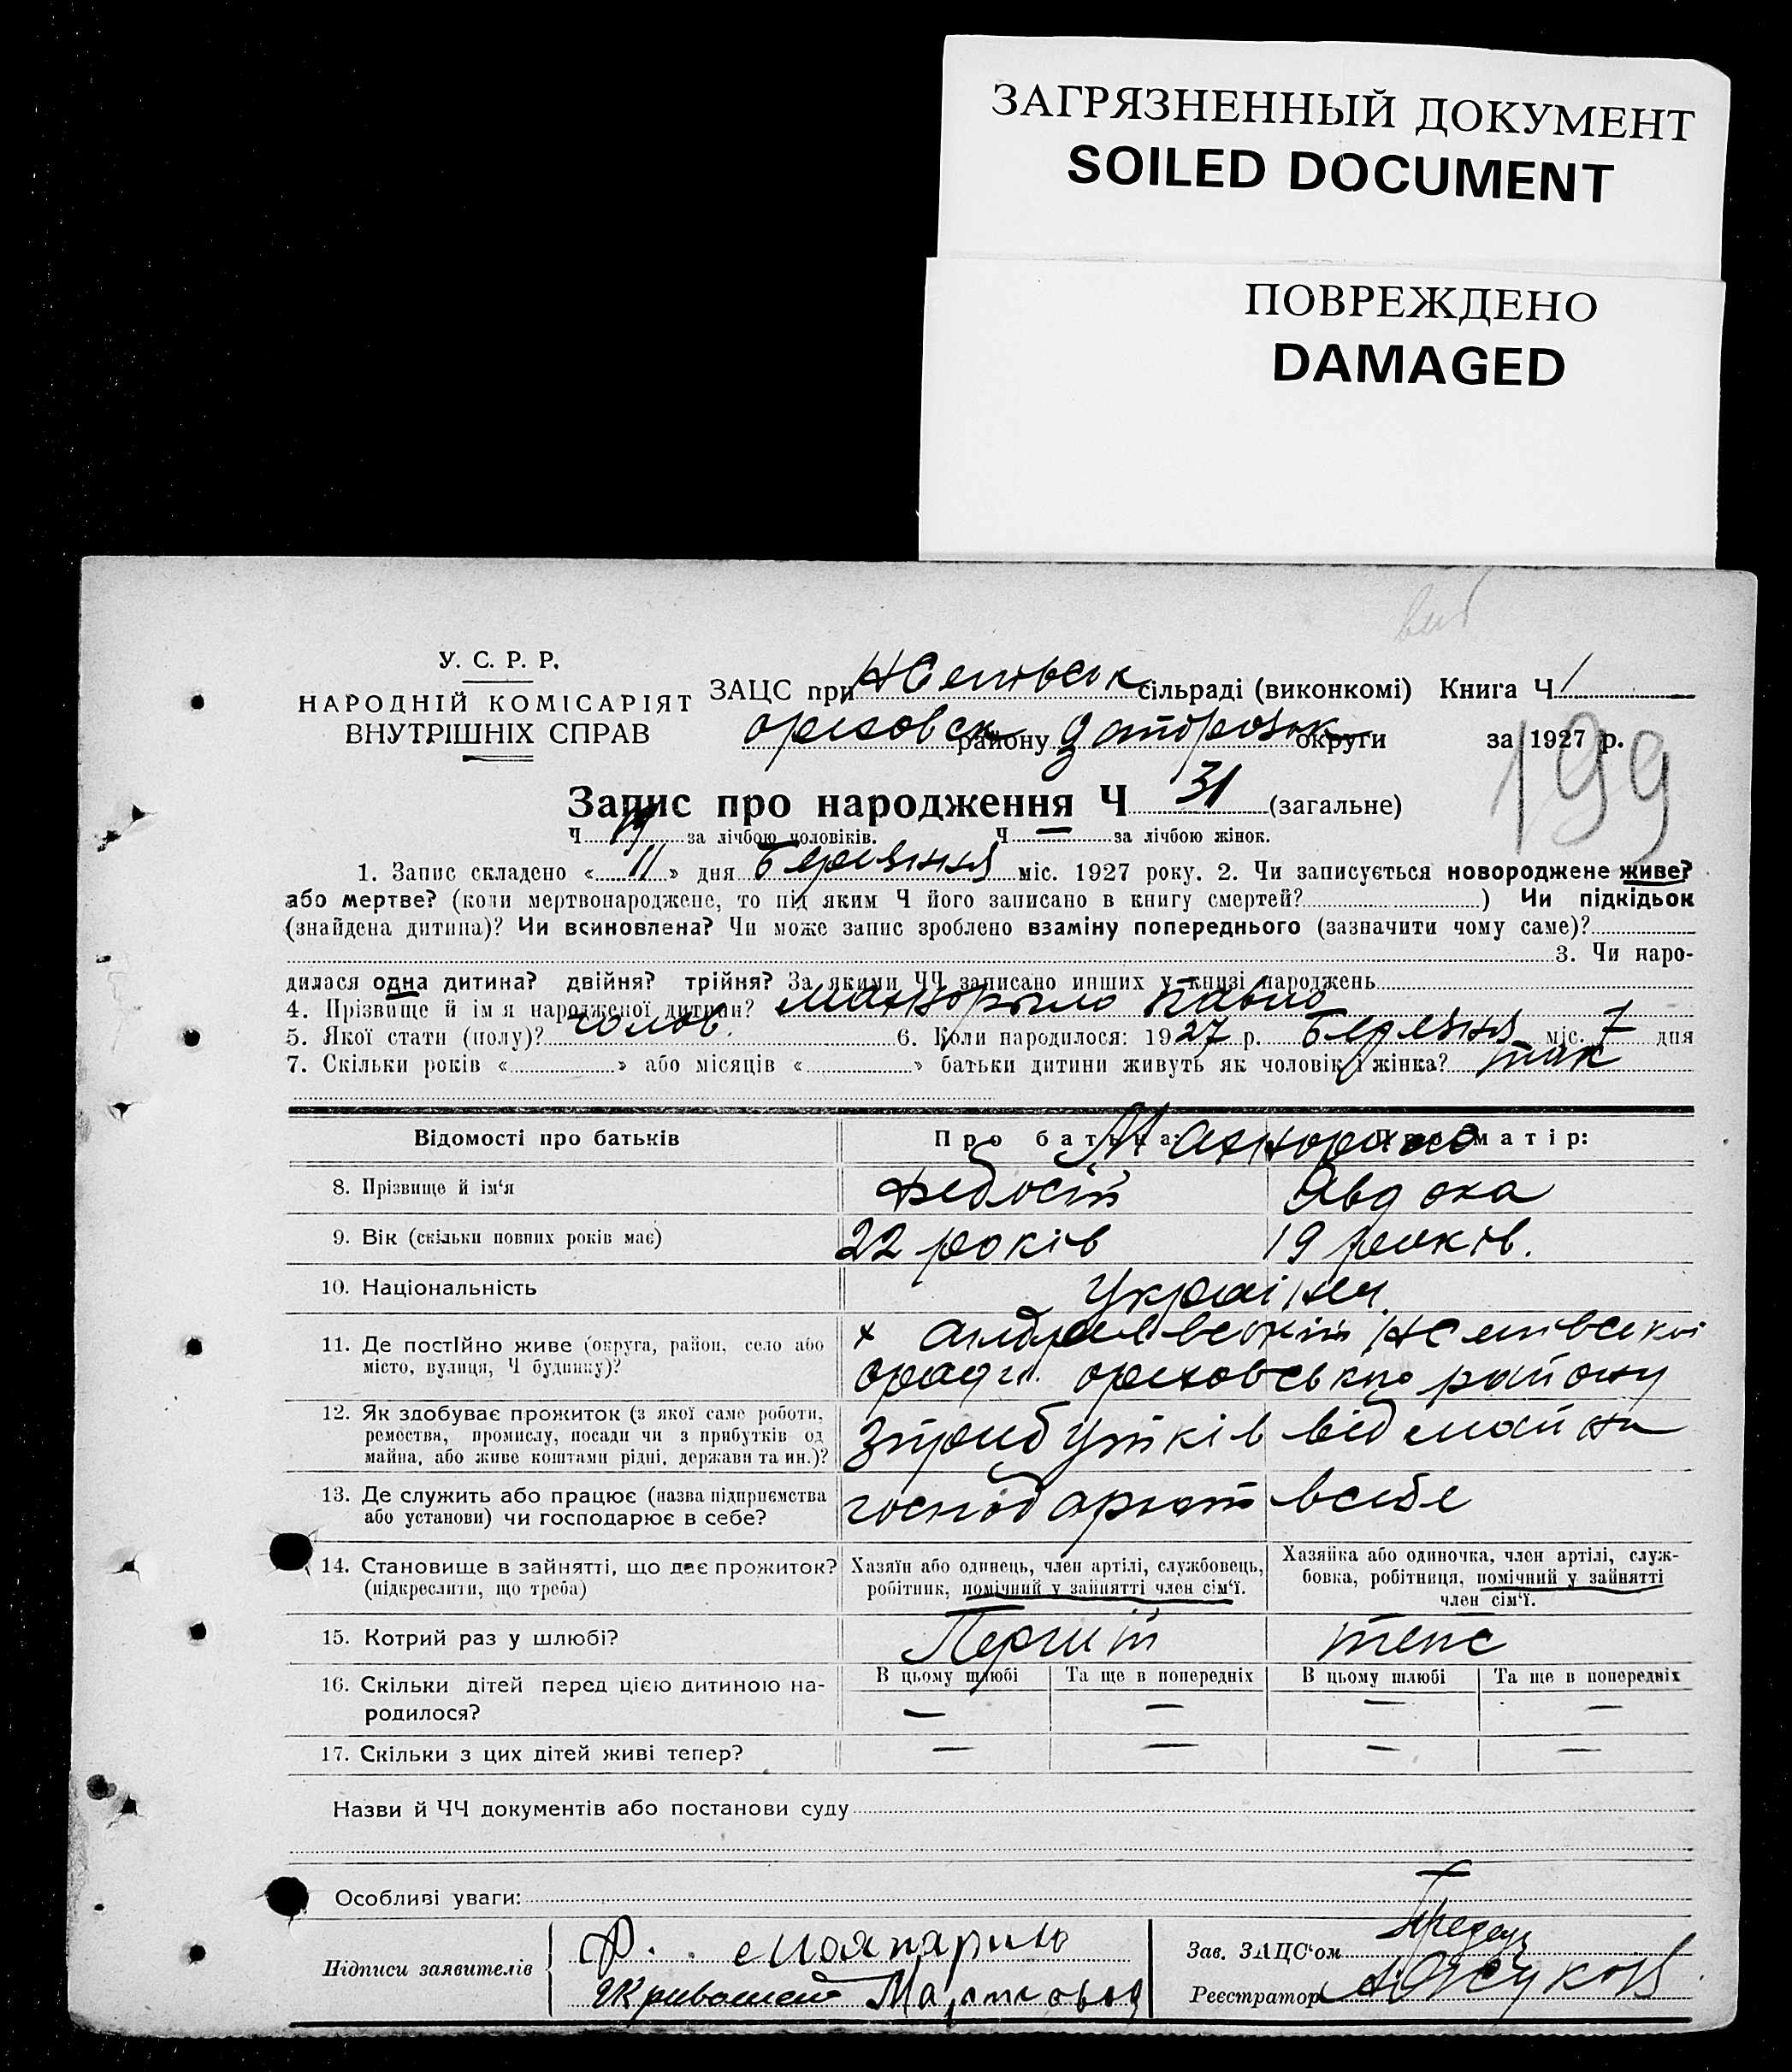 ЗАГРЯЗНЕННЫЙ ДОКУМЕНТ
SOILED DOCUMENT
ПОВРЕЖДЕНО
DAMAGED
У. С. Р. Р.
НАРОДНІЙ КОМІСАРІЯТ
ВНУТРІШНІХ СПРАВ
ЗАЦС при сільраді (виконкомі) Книга Ч 1
району округи за 1927 р.
199
Запис про народження Ч 31 (загальне)
Ч за лічбою чоловіків. Ч — за лічбою жінок.
1. Запис складено « 11 » дня Березння міс. 1927 року. 2. Чи записується новороджене живе?
або мертве? (коли мертвонароджене, то під яким Ч його записано в книгу смертей? ) Чи підкідьок
(знайдена дитина)? Чи всиновлена? Чи може запис зроблено взаміну попереднього (зазначити чому саме)?
3. Чи наро-
дилася одна дитина? двійня? трійня? За якими ЧЧ записано инших у книзі народжень
4. Прізвище й ім я народженої дитини? Павло
5. Якої стати (полу)? чолов. 6. Коли народилося: 1927 р. Березня міс. 7 дня
7. Скільки років « » або місяців « » батьки дитини живуть як чоловік і жінка? так
Відомості про батьків Про батька: Про матір:
8. Прізвище й ім'я Федосій Явдоха
9. Вік (скільки повних років має) 22 років 19 років.
10. Національність Україінці
11. Де постійно живе (округа, район, село або
місто, вулиця, Ч будинку)?
х Андреевський
ореховського району
12. Як здобуває прожиток (з якої саме роботи,
ремества, промислу, посади чи з прибутків од
майна, або живе коштами рідні, держави та ин.)?
зприбутків від майна
13. Де служить або працює (назва підприємства
або установи) чи господарює в себе?
господарюют всебе
14. Становище в зайнятті, що дає прожиток?
(підкреслити, що треба)
Хазяїн або одинець, член артілі, службовець,
робітник, помічний у зайнятті член сім'ї.
Хазяйка або одиночка, член артілі, служ-
бовка, робітниця, помічний у зайнятті
член сім'ї.
15. Котрий раз у шлюбі? Перший теж
В цьому шлюбі Та ще в попередніх В цьому шлюбі Та ще в попередніх
16. Скільки дітей перед цією дитиною на-
родилося? — — — —
17. Скільки з цих дітей живі тепер? — — — —
Назви й ЧЧ документів або постанови суду
Особливі уваги:
Підписи заявителів
Ф.
Зав. ЗАЦС'ом
Реєстратор